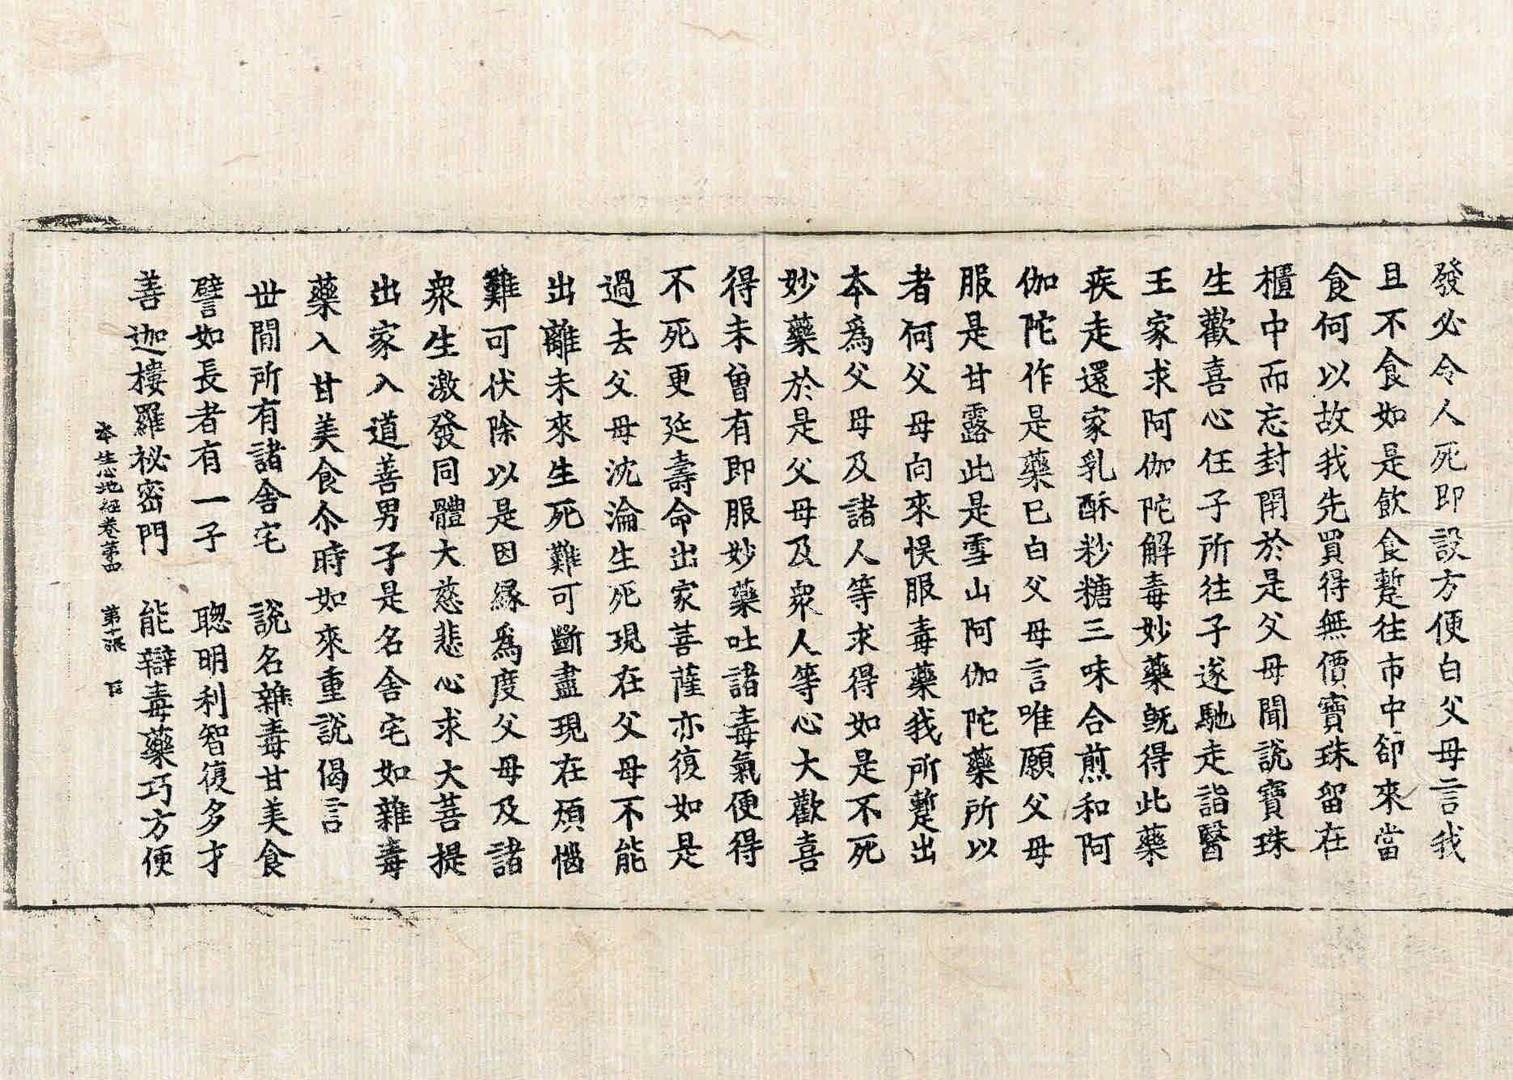 發必令人死即設方便白父母言我
且不食如是飲食蹔往市中卻來當
食何以故我先買得無價寶珠留在
櫃中而忘封閇於是父母聞說寶珠
生歡喜心任子所往子遂馳走詣醫
王家求阿伽陀解毒妙藥旣得此藥
疾走還家乳酥粆糖三味合煎和阿
伽陀作是藥已白父母言唯願父母
服是甘露此是雪山阿伽陀藥所以
者何父母向來悞服毒藥我所蹔出
本爲父母及諸人等求得如是不死
妙藥於是父母及衆人等心大歡喜
得未曾有即服妙藥吐諸毒氣便得
不死更延壽命出家菩薩亦復如是
過去父母沈淪生死現在父母不能
出離未來生死難可斷盡現在煩惱
難可伏除以是因緣爲度父母及諸
衆生激發同體大慈悲心求大菩提
出家入道善男子是名舍宅如雜毒
藥入甘美食尒時如來重說偈言
世間所有諸舍宅　說名雜毒甘美食
譬如長者有一子　聰明利智復多才
善迦樓羅祕密門　能辯毒藥巧方便
本生心地經卷第四　第十張